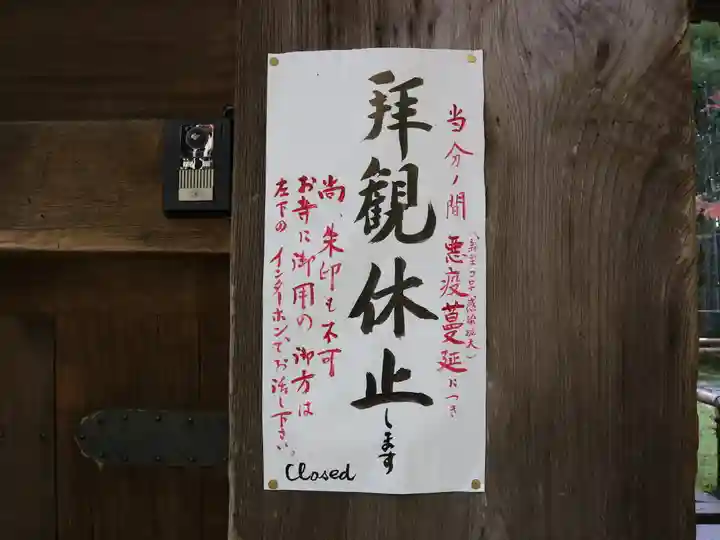 当分ノ間 悪疫蔓延につき
(新型コロナ感染拡大)
拝観休止します
尚、朱印も不可
お寺に御用の御方は
左下のインターホンでお話し下さい。
Closed